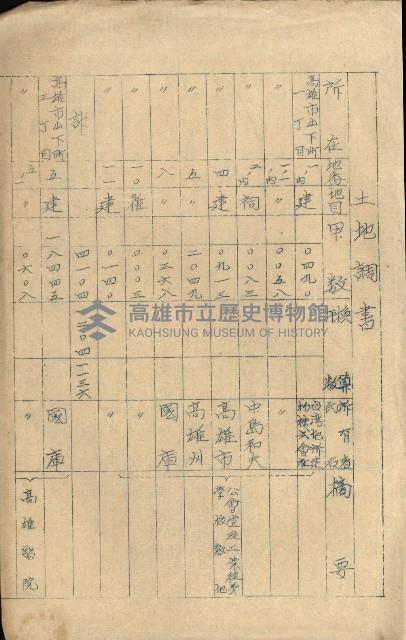 土地調書
所在 地番 地目 甲數 換算坪數 所有者氏名 摘要
高雄市山下町一丁目 一ノ內 建 〇〇四九〇 台灣地所建物株式會社
〃 〃 〇〇五八
〃 二ノ內 祠 〇〇八三 中島和夫
〃 四 建 〇九一三 高雄市
公會堂及工業學校敷地
〃 五 〃 二〇四九 高雄州
〃 八 〃 〇三六八 國庫
〃 一〇 〇〇〇三 〃
〃 一一 建 〇一四〇 〃
計 四一〇四 一二〇四一一三六
高雄市山下町二丁目 五 建 一八四四五 國庫
〃 〃 〇六〇八 〃
高雄醫院
高雄市立歷史博物館
KAOHSIUNG MUSEUM OF HISTORY